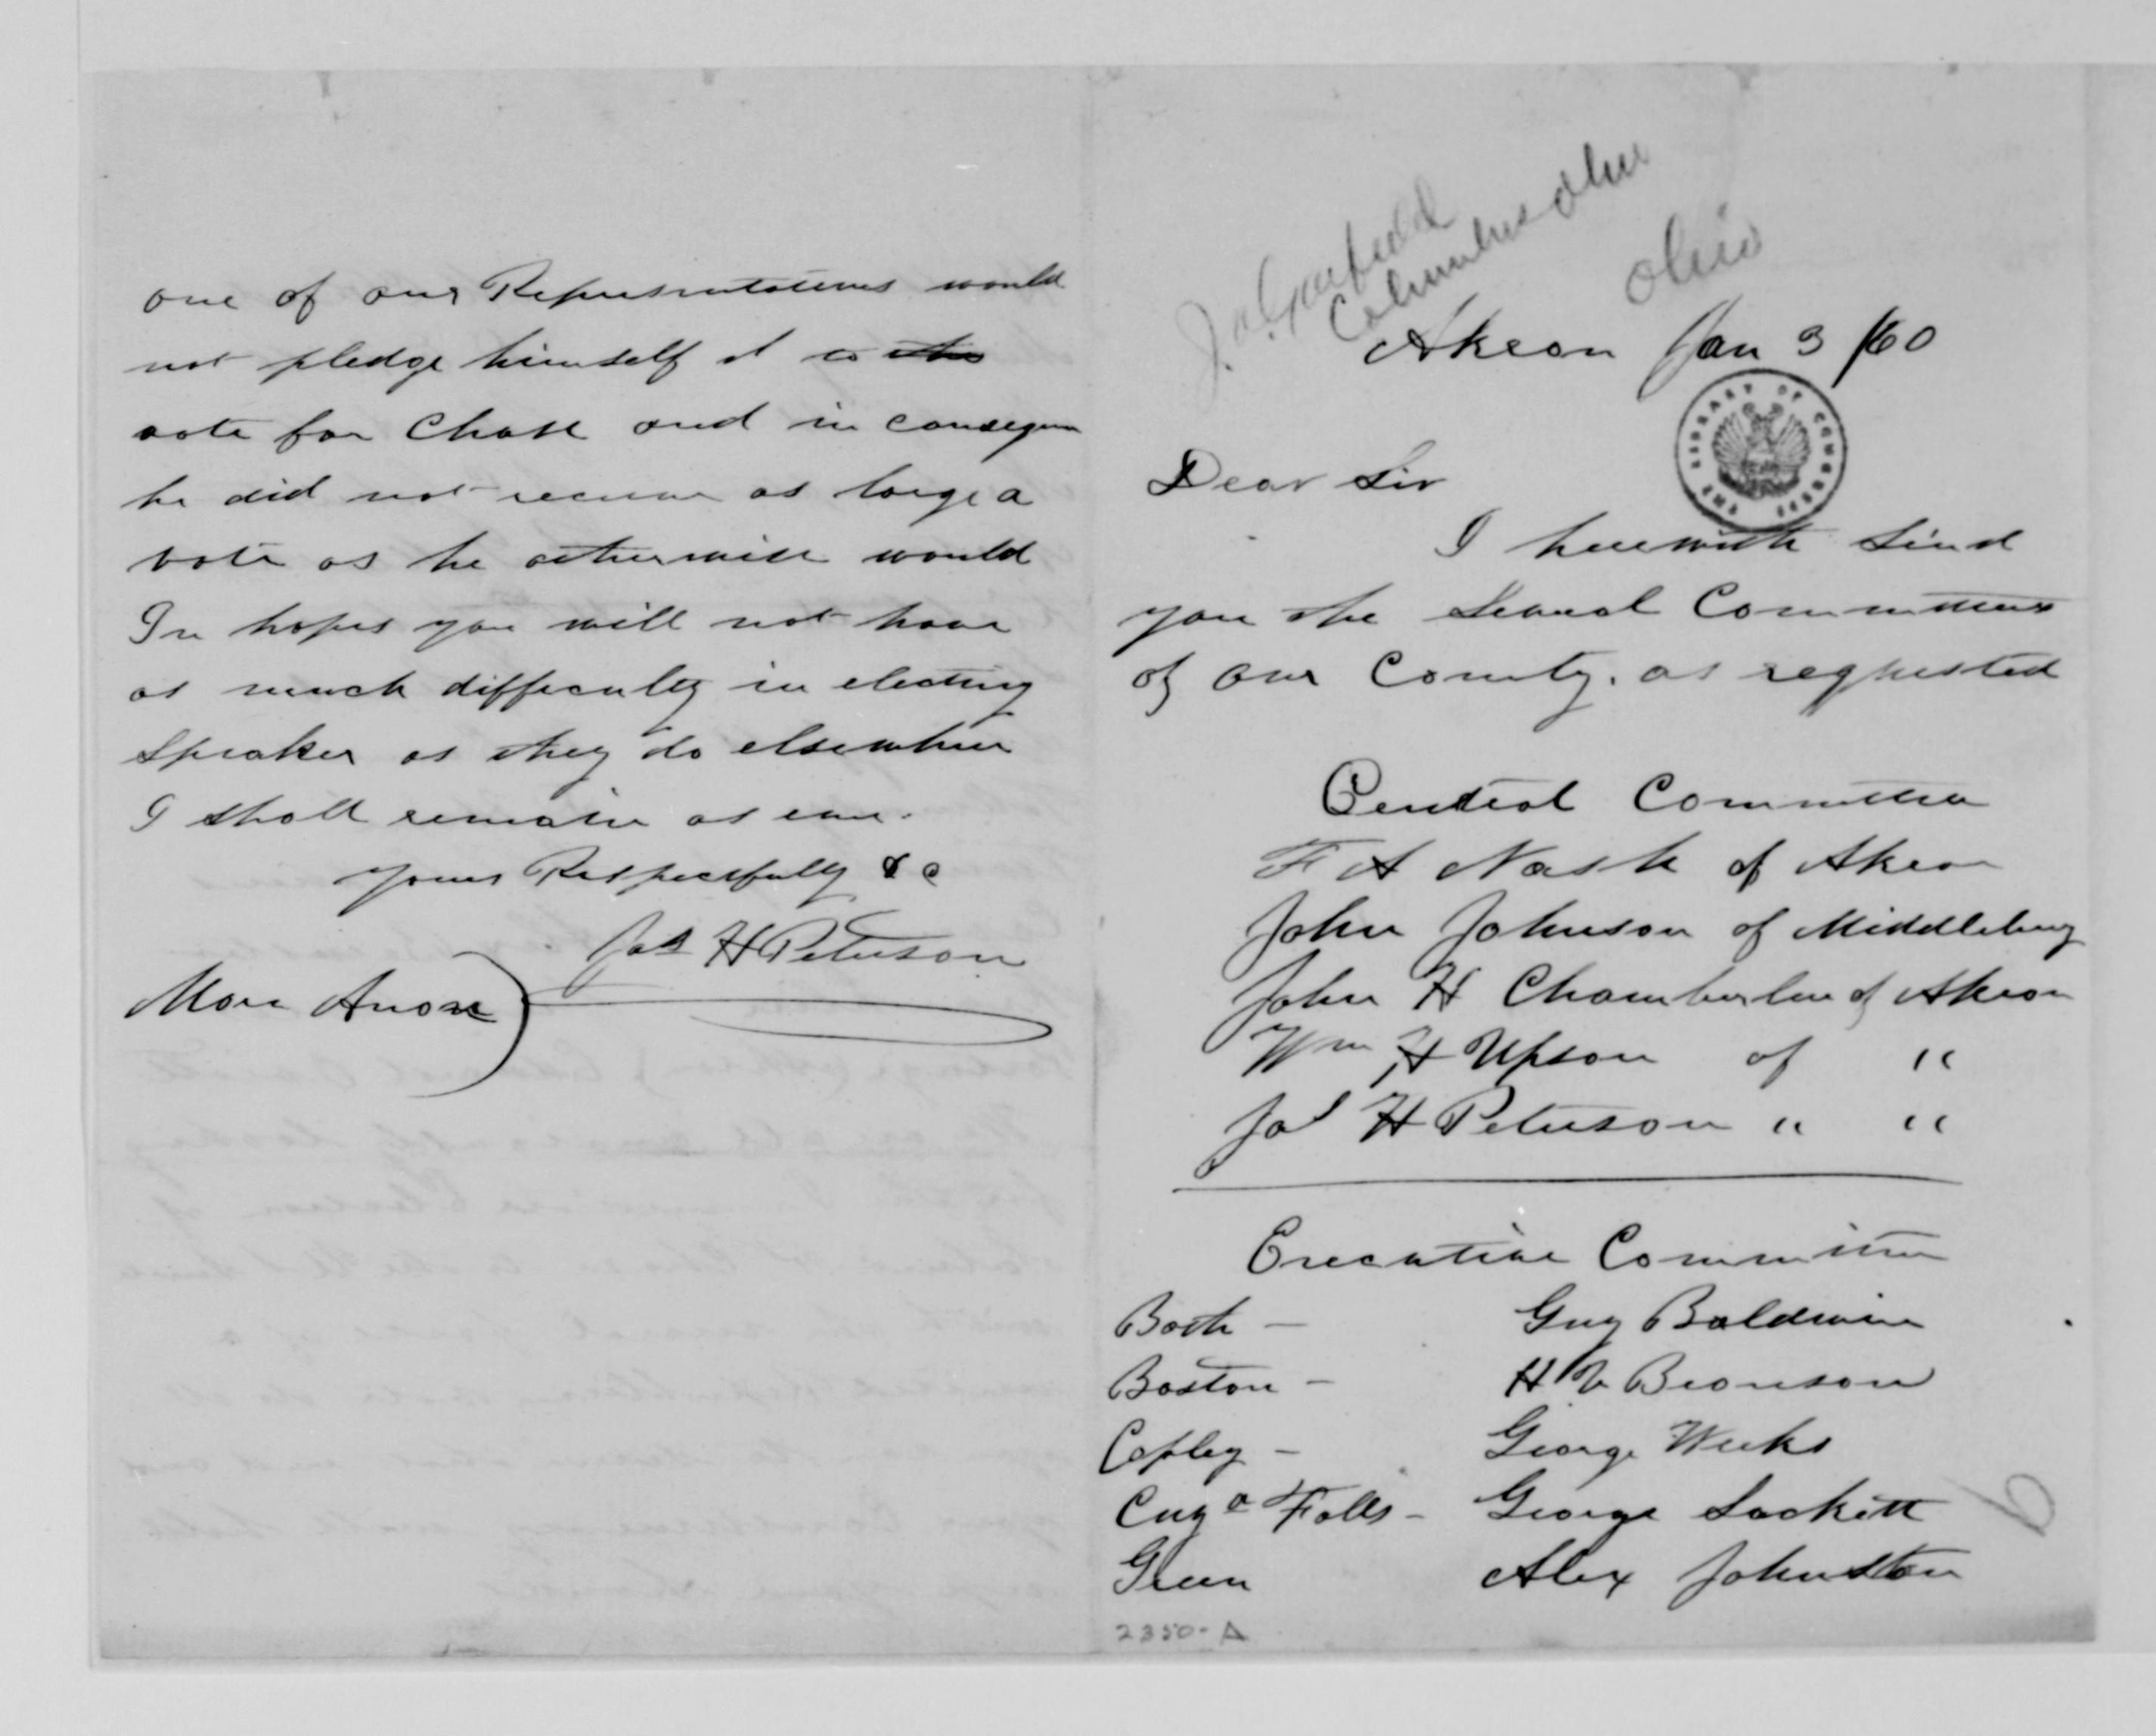 one of our Representatives would
not pledge himself to the
vote for Chase and in consequn
he did not receive as large a
vote as he otherwise would
In hopes you will not have
as much difficulty in electing
Speaker as they do elsewhere
I shall remain as ever.
yours Respectfully &c
Jas H Peterson
More Anon
J. A. Garfield
Columbus Ohio
Ohio
Akron Jan 3 /60
THE LIBRARY OF CONGRESS
Dear Sir
I herewith Send
you the Several Committees
of our County. as requested
Central Committee
F A Nash of Akron
John Johnson of Middlebury
John H Chamberlin of Akron
Wm H Upson of "
Jas H Peterson " "
Executive Committee
Bath - Guy Baldwin
Boston - H V Bronson
Copley - George Weeks
Cuya Falls - George Sackett
Green Alex Johnston
2350-A